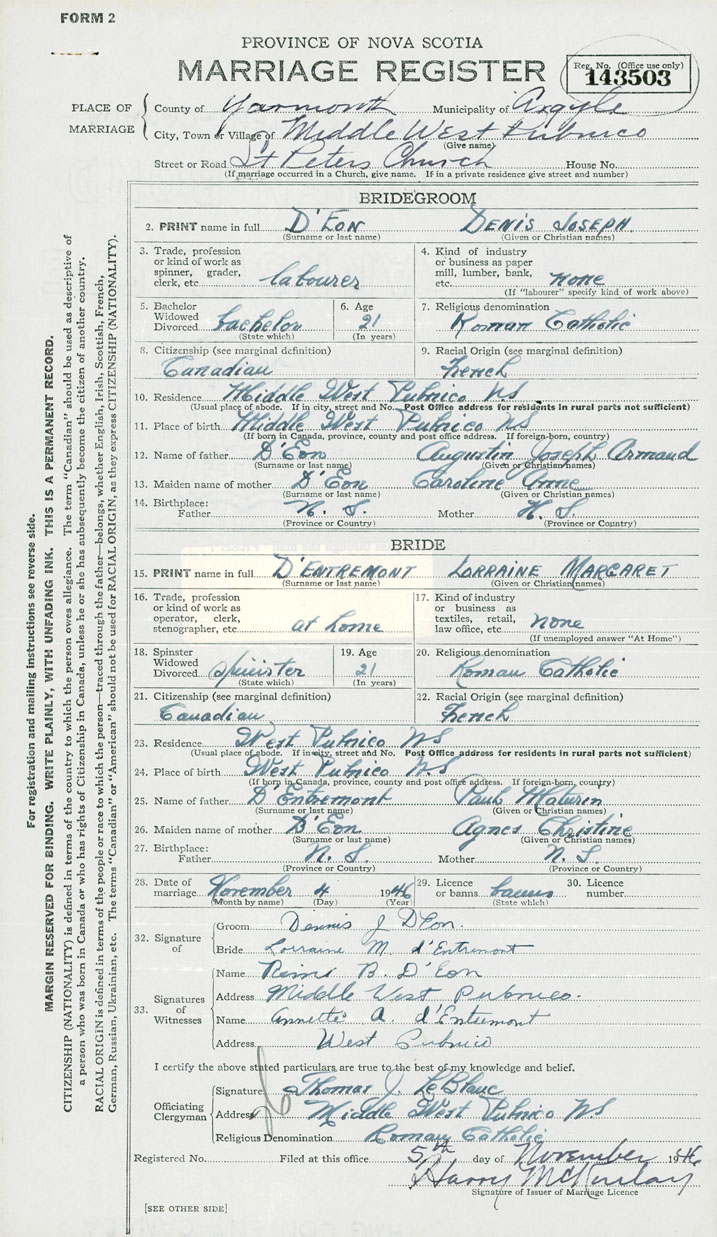 FORM 2
PROVINCE OF NOVA SCOTIA
MARRIAGE REGISTER
Reg. No. (Office use only)
143503
PLACE OF MARRIAGE
County of Yarmouth Municipality of Argyle
City, Town or Village of Middle West Pubnico
(Give name)
Street or Road St Peters Church House No.
(If marriage occurred in a Church, give name. If in a private residence give street and number)
BRIDEGROOM
2. PRINT name in full D'EON DENIS JOSEPH
(Surname or last name) (Given or Christian names)
3. Trade, profession or kind of work as spinner, grader, clerk, etc. labourer
4. Kind of industry or business as paper mill, lumber, bank, etc. none
(If "labourer" specify kind of work above)
5. Bachelor Widowed Divorced bachelor
(State which)
6. Age 21
(In years)
7. Religious denomination
Roman Catholic
8. Citizenship (see marginal definition)
Canadian
9. Racial Origin (see marginal definition)
French
10. Residence Middle West Pubnico NS
(Usual place of abode. If in city, street and No. Post Office address for residents in rural parts not sufficient)
11. Place of birth Middle West Pubnico NS
(If born in Canada, province, county and post office address. If foreign-born, country)
12. Name of father D'Eon Augustin Joseph Armand
(Surname or last name) (Given or Christian names)
13. Maiden name of mother D'Eon Caroline Anne
(Surname or last name) (Given or Christian names)
14. Birthplace: Father N. S. Mother N. S.
(Province or Country) (Province or Country)
BRIDE
15. PRINT name in full D'ENTREMONT LORRAINE MARGARET
(Surname or last name) (Given or Christian names)
16. Trade, profession or kind of work as operator, clerk, stenographer, etc. at home
17. Kind of industry or business as textiles, retail, law office, etc. none
(If unemployed answer "At Home")
18. Spinster Widowed Divorced spinster
(State which)
19. Age 21
(In years)
20. Religious denomination
Roman Catholic
21. Citizenship (see marginal definition)
Canadian
22. Racial Origin (see marginal definition)
French
23. Residence West Pubnico NS
(Usual place of abode. If in city, street and No. Post Office address for residents in rural parts not sufficient)
24. Place of birth West Pubnico N.S
(If born in Canada, province, county and post office address. If foreign-born, country)
25. Name of father D'Entremont Paul Maturin
(Surname or last name) (Given or Christian names)
26. Maiden name of mother D'Eon Agnes Christine
(Surname or last name) (Given or Christian names)
27. Birthplace: Father N. S. Mother N. S.
(Province or Country) (Province or Country)
28. Date of marriage November 4 1946
(Month by name) (Day) (Year)
29. Licence or banns banns
(State which)
30. Licence number
32. Signature of
Groom Dennis J D'Eon.
Bride Lorraine M. d'Entremont
33. Signatures of Witnesses
Name Remi B. D'Eon
Address Middle West Pubnico.
Name Annette A. d'Entremont
Address West Pubnico
I certify the above stated particulars are true to the best of my knowledge and belief.
Officiating Clergyman
Signature Thomas J. LeBlanc
Address Middle West Pubnico NS
Religious Denomination Roman Catholic
Registered No. Filed at this office 5th day of November 1946
Harry McKinlay
Signature of Issuer of Marriage Licence
[SEE OTHER SIDE]
For registration and mailing instructions see reverse side.
MARGIN RESERVED FOR BINDING. WRITE PLAINLY, WITH UNFADING INK. THIS IS A PERMANENT RECORD.
CITIZENSHIP (NATIONALITY) is defined in terms of the country to which the person owes allegiance. The term "Canadian" should be used as descriptive of
a person who was born in Canada or who has rights of Citizenship in Canada, unless he or she has subsequently become the citizen of another country.
RACIAL ORIGIN is defined in terms of the people or race to which the person—traced through the father—belongs, whether English, Irish, Scottish, French,
German, Russian, Ukrainian, etc. The terms "Canadian" or "American" should not be used for RACIAL ORIGIN, as they express CITIZENSHIP (NATIONALITY).